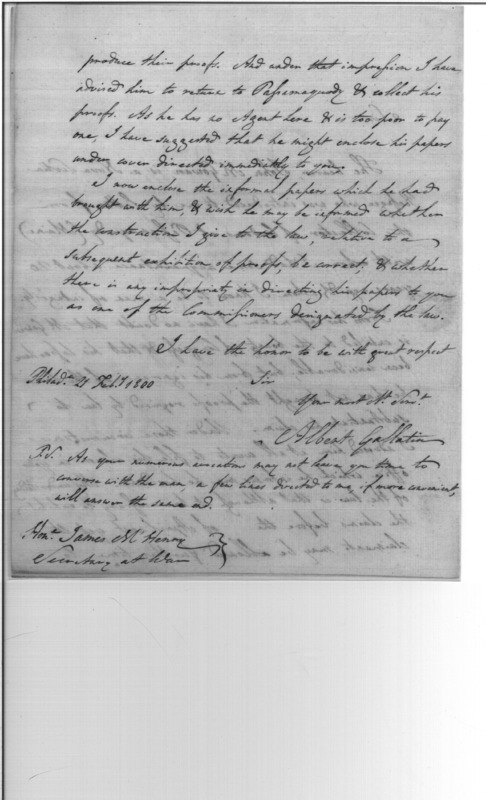 produce their proofs. And under that impression I have
advised him to return to Passamaquody & collect his
proofs. As he has no Agent here & is too poor to pay
one, I have suggested that he might enclose his papers
under cover directed immediately to you.
I now enclose the informal papers which he had
brought with him, & wish he may be informed whether
the construction I give to the law, relative to a
subsequent exhibition of proofs, be correct, & whether
there is any impropriety in directing his papers to you
as one of the Commissioners designated by the law.
I have the honor to be with great respect
Philad.ª 21 Feb.y 1800 Sir
Your most Ob. Serv.t
Albert Gallatin
P.S. As your numerous avocations may not leave you time to
converse with the man a few lines directed to me, if more convenient,
will answer the same end.
Hon.e James McHenry
Secretary at War